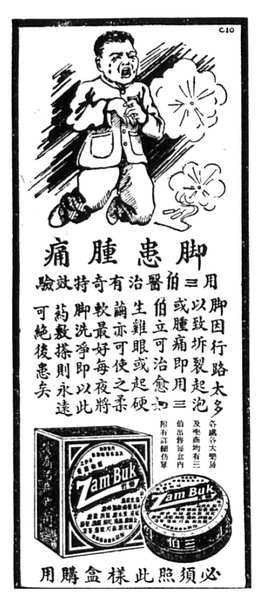 C10
脚患腫痛
用三伯醫治有奇特效驗
脚因行路太多
以致坼裂起泡
或腫痛即用三
伯立可治愈
生雞眼或起硬
繭亦可使之柔
軟最好每夜將
脚洗淨即以此
葯敷搽則永遠
可絶後患矣
各處各大藥房
及藥商均有三
伯出售每盒內
附有詳細仿單
Zam-Buk
Zam-Buk
三伯
必須照此樣盒購用